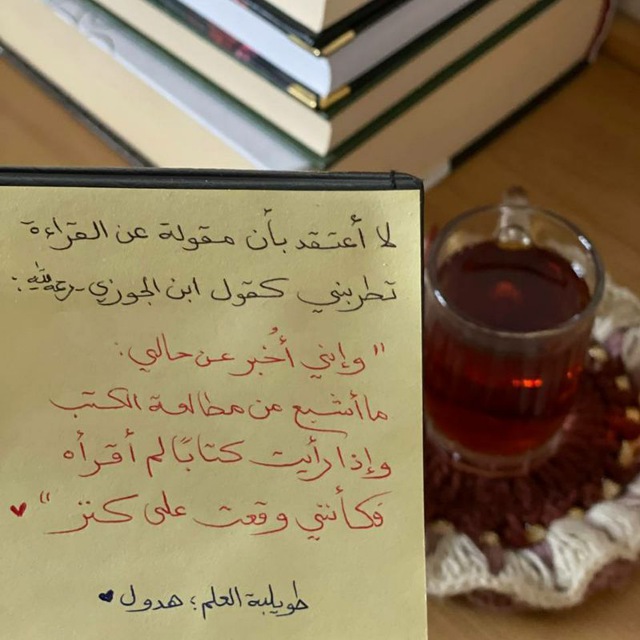 لا أعتقد بأن مقولة عن القراءة
تطربني كقول ابن الجوزي -رحمه الله-:
"وإنني أُخبر عن حالي:
ما أشبع من مطالعة الكتب
وإذا رأيت كتابًا لم أقرأه
فكأنني وقعت على كنز" ♥
طويلبة العلم؛ هدول ♥